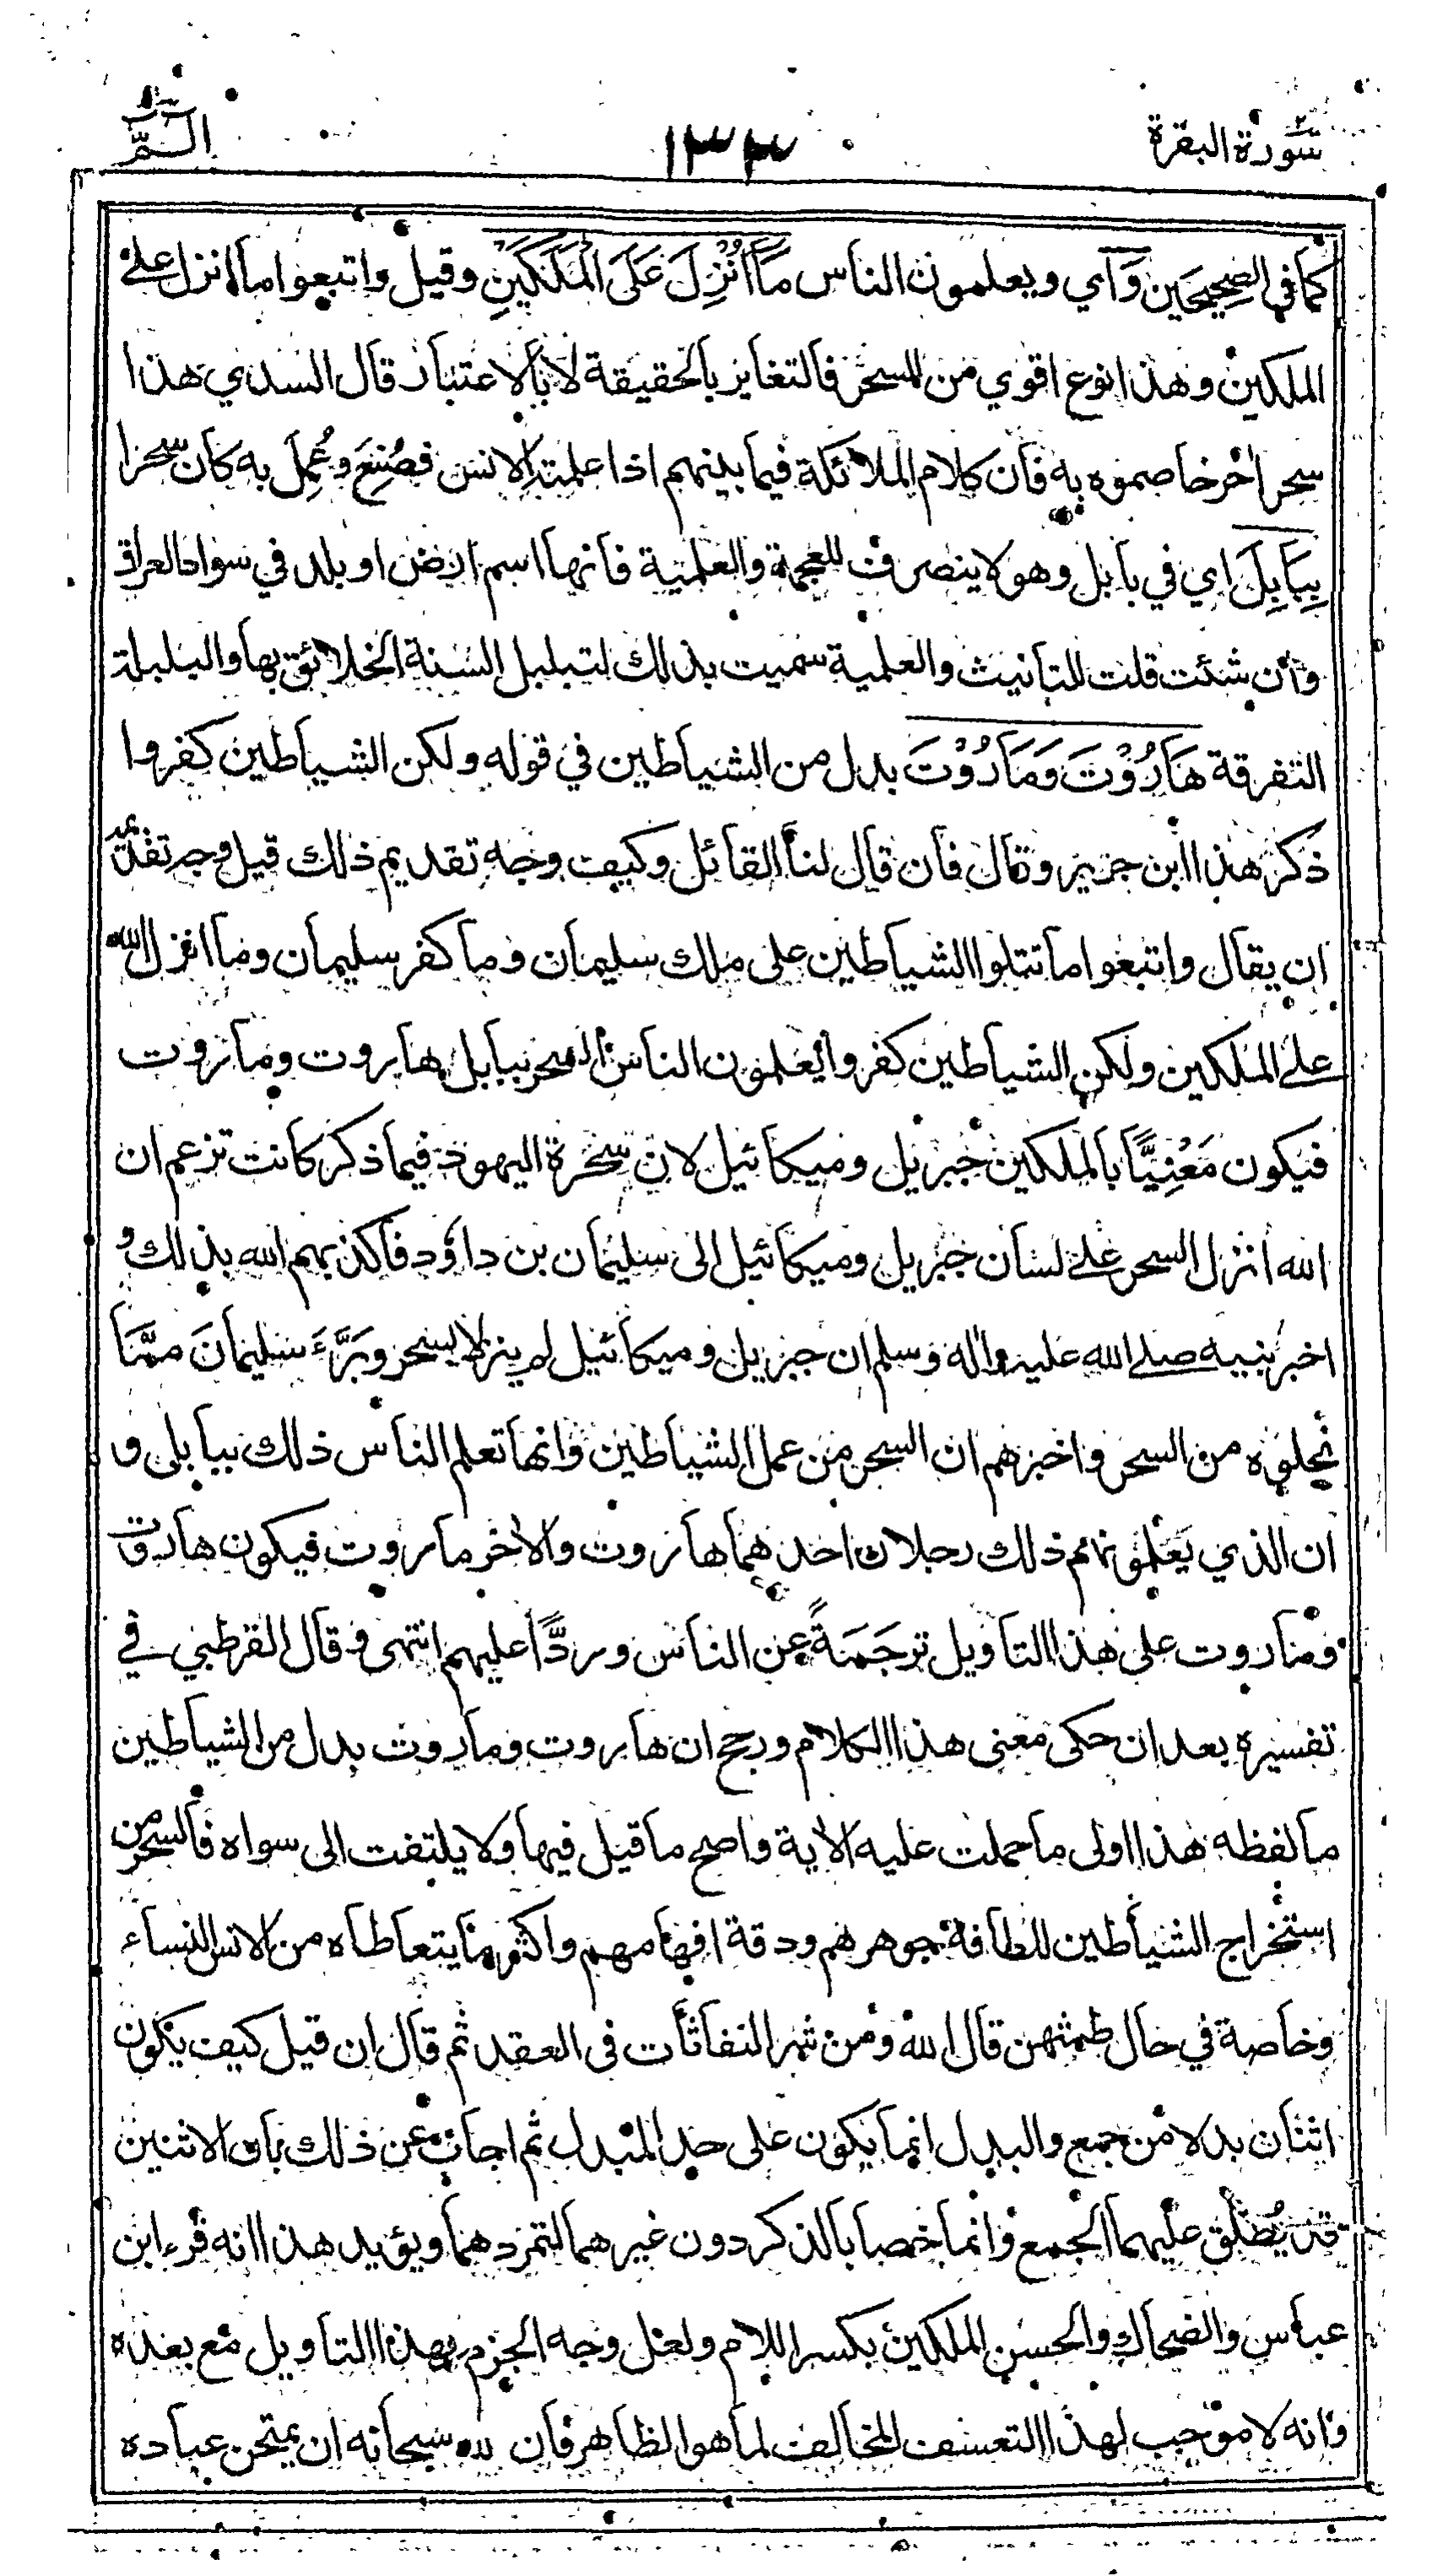 سورة البقرة
١٣٣
الٓمّٓ
كما في الصحيحين وَ اي ويعلمون الناس مَآ اُنْزِلَ عَلَى الْمَلَكَيْنِ وقيل واتبعوا ما انزل على
الملكين وهذا نوع اقوي من السحر فالتغاير بالحقيقة لا بالاعتبار قال السدي هذا
سحر اخر خاصموه به فان كلام الملائكة فيما بينهم اذا علمته الانس فصُنِعَ وعُمِلَ به كان سحرا
بِبَابِلَ اي في بابل وهو لا ينصرف للعجمة والعلمية فانها اسم ارض او بلد في سواد العراق
وان شئت قلت للتانيث والعلمية سميت بذلك لتبلبل السنة الخلائق بها والبلبلة
التفرقة هَارُوْتَ وَمَارُوْتَ بدل من الشياطين في قوله ولكن الشياطين كفروا
ذكر هذا ابن جرير وقال فان قال لنا القائل وكيف وجه تقديم ذلك قيل وجه تقديمه
ان يقال واتبعوا ما تتلوا الشياطين على ملك سليمان وما كفر سليمان وما انزل الله
على الملكين ولكن الشياطين كفروا يعلمون الناس السحر ببابل هاروت وماروت
فيكون مَعْنِيًّا بالملكين جبريل وميكائيل لان سَحَرة اليهود فيما ذكر كانت تزعم ان
الله انزل السحر على لسان جبريل وميكائيل الى سليمان بن داؤد فاكذبهم الله بذلك و
اخبر نبيه صلى الله عليه واٰله وسلم ان جبريل وميكائيل لم ينزلا بسحر وبَرَّءَ سليمانَ ممَّا
نحلوه من السحر واخبرهم ان السحر من عمل الشياطين وانها تعلم الناس ذلك ببابل و
ان الذي يَعْلمونهم ذلك رجلان احدهما هاروت والاٰخر ماروت فيكون هاروت
وماروت على هذا التاويل ترجَمَةً عن الناس وردًّا عليهم انتهى وقال القرطبي في
تفسيره بعد ان حكى معنى هذا الكلام ورجح ان هاروت وماروت بدل من الشياطين
ما لفظه هذا اولى ما حملت عليه الاٰية واصح ما قيل فيها ولا يلتفت الى سواه فالسحر من
استخراج الشياطين للطافة جوهرهم ودقة افهامهم واكثر ما يتعاطاه من الانس النساء
وخاصة في حال طمثهن قال الله ومن شر النفاثات فى العقد ثم قال ان قيل كيف يكون
اثنان بدلا من جمع والبدل انما يكون على حد المبدل ثم اجاب عن ذلك بان الاثنين
قد يُطلق عليهما الجمع وانما خصا بالذكر دون غيرهما لتمردهما ويؤيد هذا انه قرء ابن
عباس والضحاك والحسن الملكين بكسر اللام ولعل وجه الجزم بهذا التاويل مع بعده
وانه لا موجب لهذا التعسف المخالف لما هو الظاهر فان لله سبحانه ان يمتحن عباده